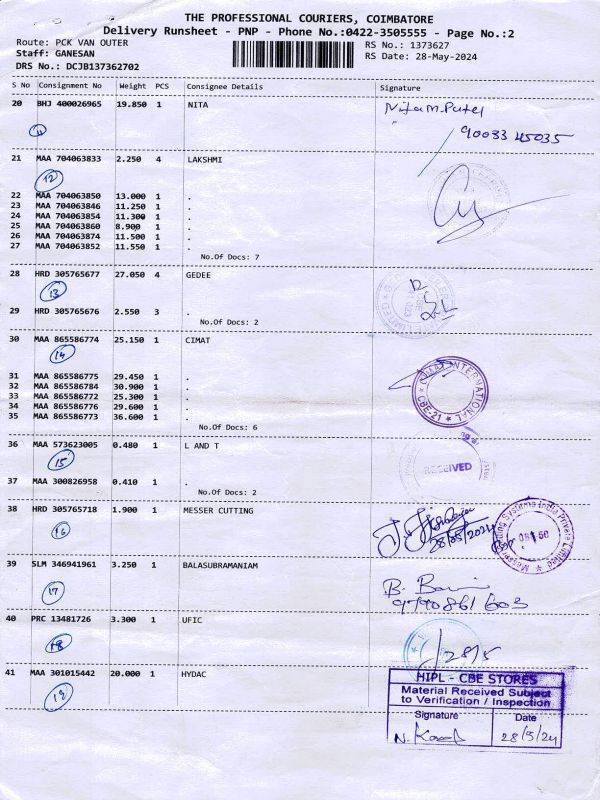 THE PROFESSIONAL COURIERS, COIMBATORE
Delivery Runsheet - PNP - Phone No.:0422-3505555 - Page No.:2
Route: PCK VAN OUTER
Staff: GANESAN
DRS No.: DCJB137362702
RS No.: 1373627
RS Date: 28-May-2024
S No Consignment No Weight PCS Consignee Details Signature
20 BHJ 400026965 19.850 1 NITA Nita M. Patel
11 90033 45035
21 MAA 704063833 2.250 4 LAKSHMI
12
22 MAA 704063850 13.000 1 .
23 MAA 704063846 11.250 1 .
24 MAA 704063854 11.300 1 .
25 MAA 704063860 8.900 1 .
26 MAA 704063874 11.500 1 .
27 MAA 704063852 11.550 1 .
No.Of Docs: 7
28 HRD 305765677 27.050 4 GEDEE
13
29 HRD 305765676 2.550 3 .
No.Of Docs: 2
30 MAA 865586774 25.150 1 CIMAT
14
INTERNATIONAL
CBE-21
31 MAA 865586775 29.450 1 .
32 MAA 865586784 30.900 1 .
33 MAA 865586772 25.300 1 .
34 MAA 865586776 29.600 1 .
35 MAA 865586773 36.600 1 .
No.Of Docs: 6
36 MAA 573623005 0.480 1 L AND T
15
RECEIVED
37 MAA 300826958 0.410 1 .
No.Of Docs: 2
38 HRD 305765718 1.900 1 MESSER CUTTING
16
28/05/2024
Systems India Private Limited
39 SLM 346941961 3.250 1 BALASUBRAMANIAM
17
9790861603
40 PRC 13481726 3.300 1 UFIC
18
28/5
41 MAA 301015442 20.000 1 HYDAC
19
HIPL - CBE STORES
Material Received Subject
to Verification / Inspection
Signature Date
28/5/24